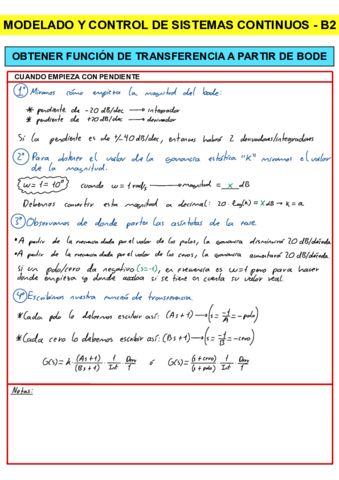 MODELADO Y CONTROL DE SISTEMAS CONTINUOS - B2
OBTENER FUNCIÓN DE TRANSFERENCIA A PARTIR DE BODE
CUANDO EMPIEZA CON PENDIENTE
1º Miramos cómo empieza la magnitud del bode:
* pendiente de -20 dB/dec → integrador
* pendiente de +20 dB/dec → derivador
Si la pendiente es de +/- 40 dB/dec, entonces habrá 2 derivadores/integradores
2º Para obtener el valor de la ganancia estática "K" miramos el valor
de la magnitud.
{w = 1 = 10⁰} cuando w = 1 rad/s → magnitud = x dB
Debemos convertir esta magnitud a decimal: 20·log(k) = X dB → k = a
3º Observamos de donde parten las asíntotas de la fase.
* A partir de la frecuencia dada por el valor de los polos, la ganancia disminuirá 20 dB/década
* A partir de la frecuencia dada por el valor de los ceros, la ganancia aumentará 20 dB/década.
Si un polo/cero da negativo (s=-1), en frecuencia es w=1 pero para hacer
donde empieza y donde acaba si se tiene en cuenta su valor real.
4º Escribimos nuestra función de transferencia.
* Cada polo lo debemos escribir así: (As+1) → (s = -1/A = -polo)
* Cada cero lo debemos escribir así: (Bs+1) → (s = -1/B = -cero)
G(s) = k · (As+1)/(Bs+1) · 1/Int · Der/1 ó G(s) = (s+cero)/(s+polo) · 1/Int · Der/1
Notas: